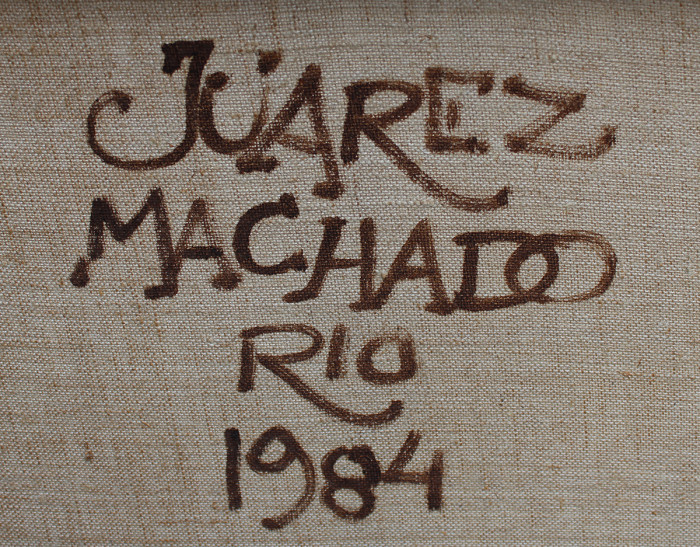 JUAREZ
MACHADO
RIO
1984